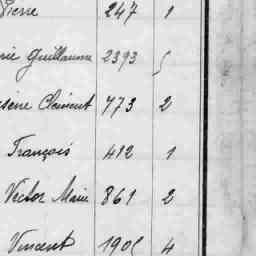 Pierre 247 1
rie Guillaume 2393 5
sène Clément 773 2
François 412 1
Victor Marie 861 2
Vincent 1905 4